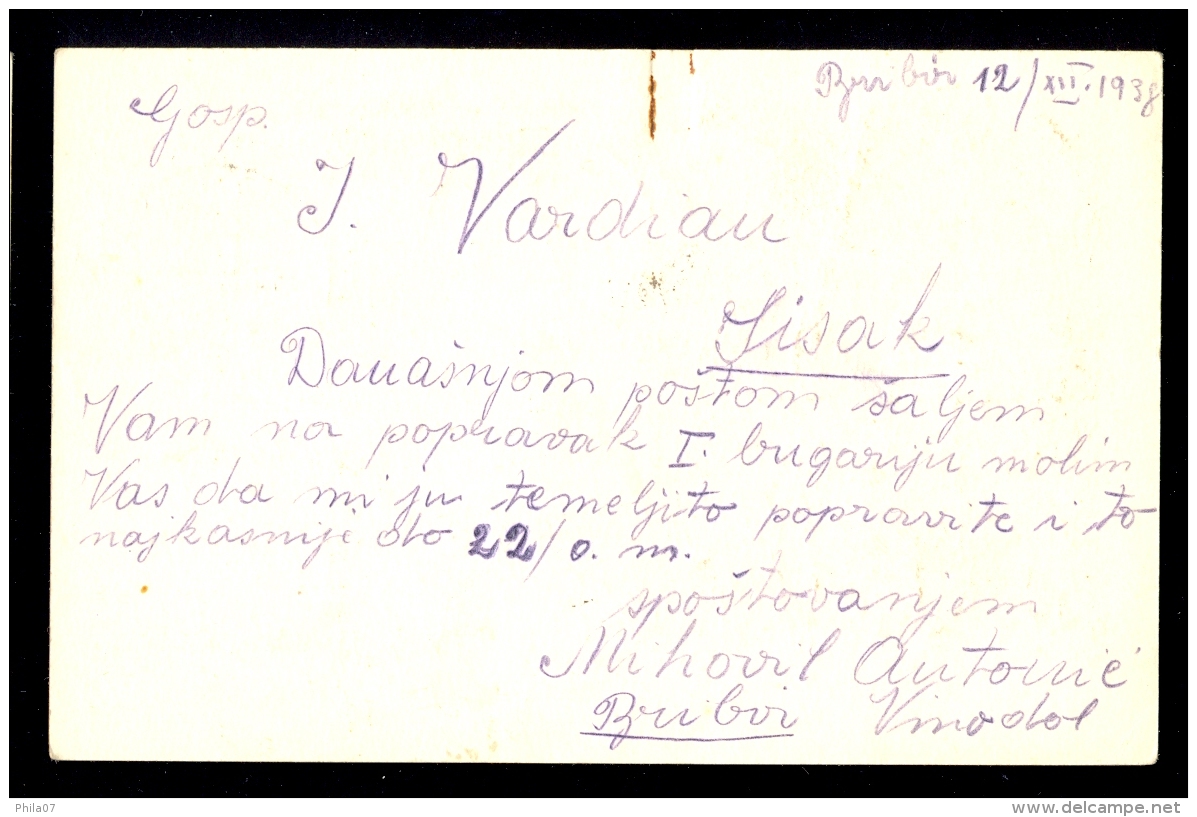 Bribir 12/XII. 1938
Gosp.
J. Vardian
Sisak
Današnjom poštom šaljem
Vam na popravak I. bugariju molim
Vas da mi ju temeljito popravite i to
najkasnije do 22/o. m.
spoštovanjem
Mihovil Antonić
Bribir Vinodol
Phila07
www.delcampe.net